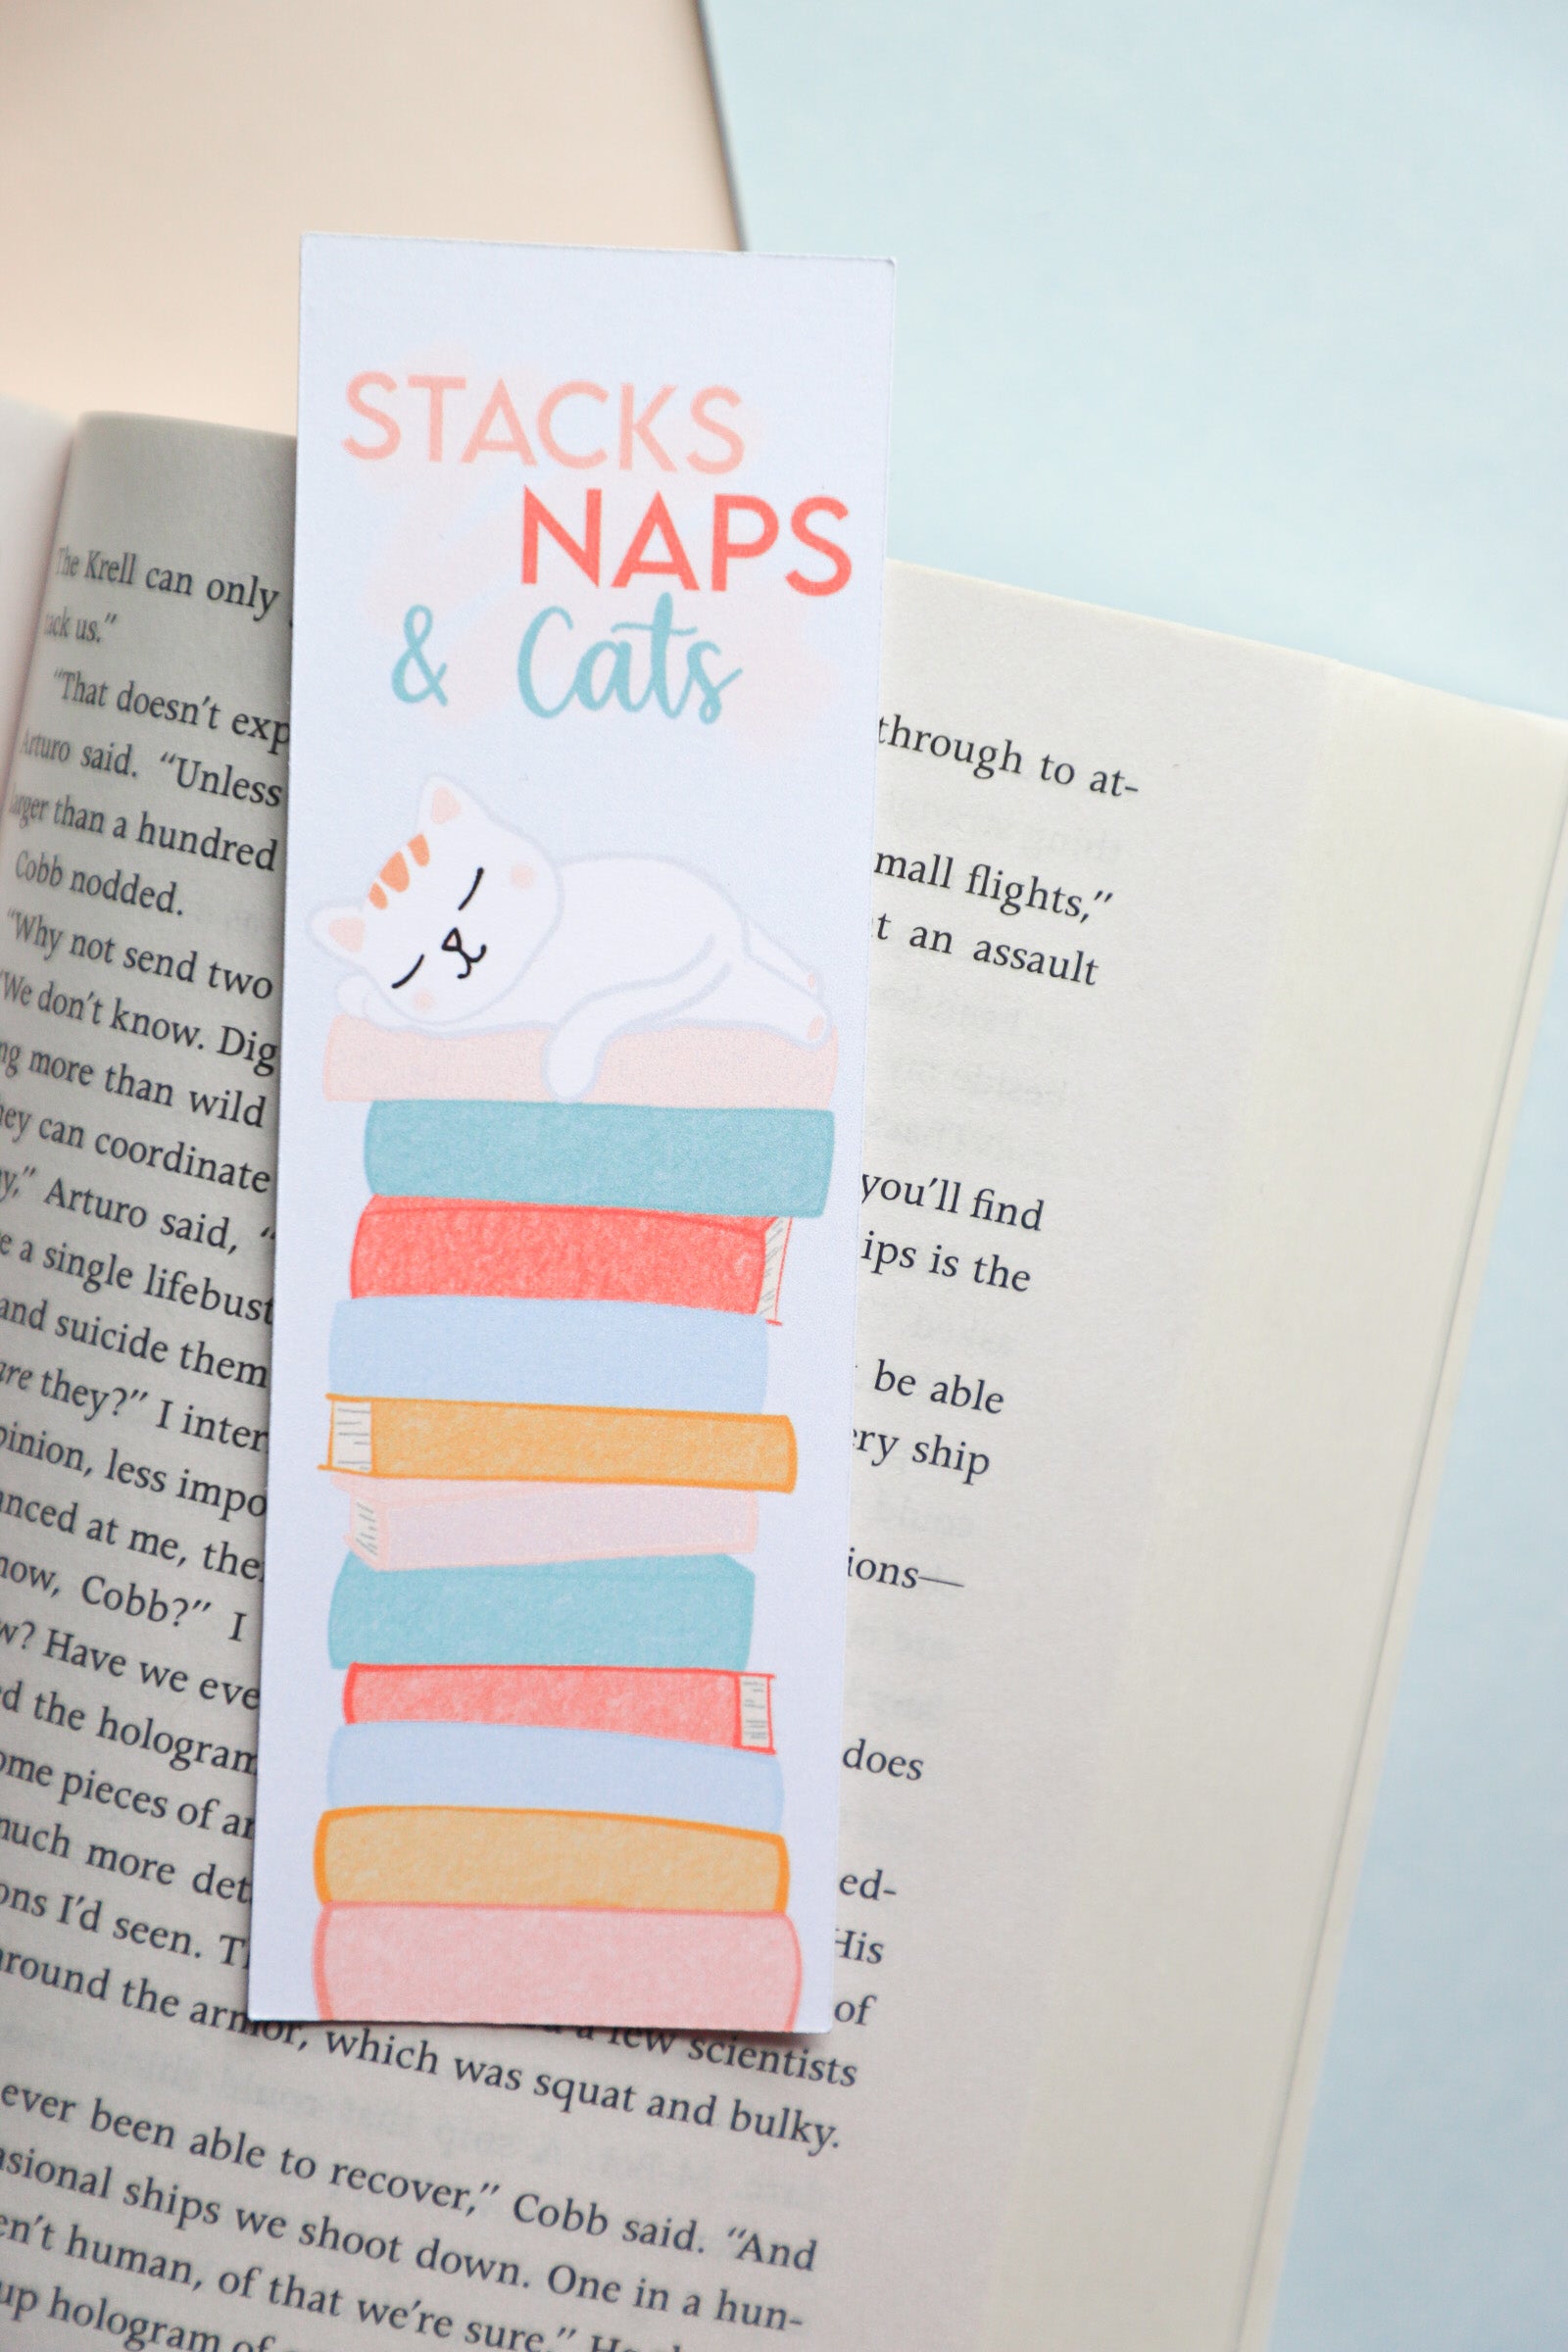 STACKS
NAPS
& Cats
The Krell can only
through to at-
us.”
“That doesn’t
Arturo said. “Unless
mall flights,”
than a hundred
an assault
Cobb nodded.
“Why not send two
“We don’t know. Dig
more than wild
you’ll find
can coordinate
ips is the
Arturo said, “
a single lifebust
be able
and suicide them
ship
they?” I inter
ions—
pinion, less impo
at me, the
Cobb?” I
does
Have we eve
the hologram
pieces of
ed-
much more det
His
I’d seen.
of
around the armor, which was squat and bulky.
a few scientists
ever been able to recover,” Cobb said. “And
ships we shoot down. One in a hun-
human, of that we’re sure.”
up hologram of